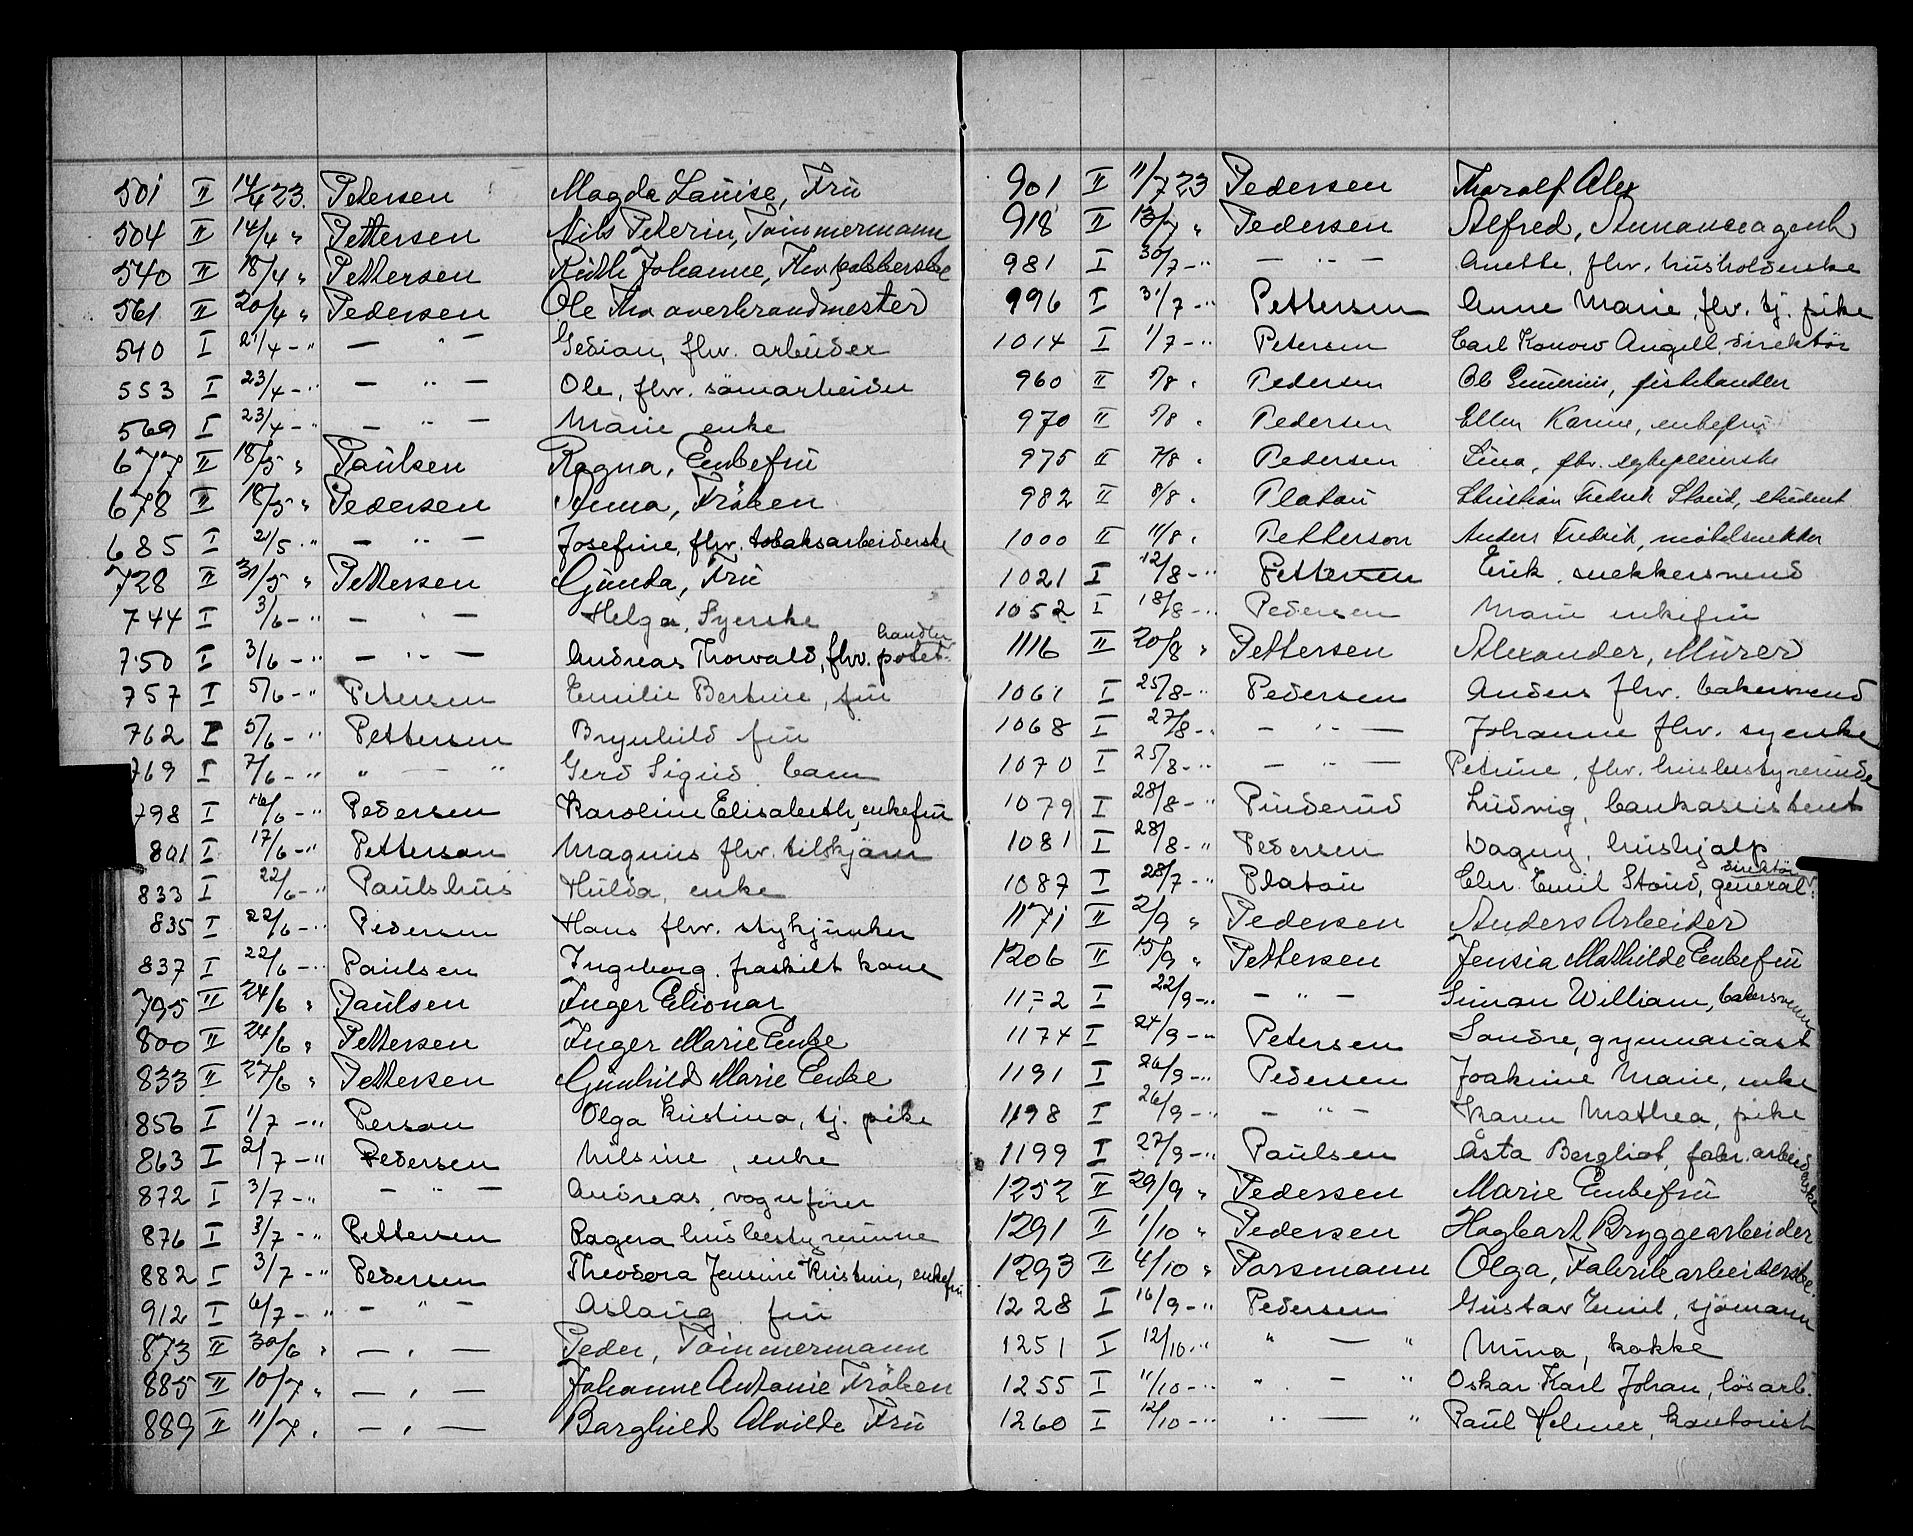 501 II 14/4 23. Petersen Magda Louise, Frü
504 II 14/4 " Pettersen Nils Peterin, Tömmermann
540 II 18/4 " Pettersen Rüth Johanne, Fhv.
561 II 20/4 " Pedersen Ole Tho overbrandmester
540 I 21/4 - " — " — Gedian, fhv. arbeider
553 I 23/4 - " — " — Ole, fhv. sömarbeider
569 I 23/4 - " — " — Marie enke
677 II 18/5 " Paülsen Ragna, Enkefrü
678 II 18/5 " Pedersen Anna, Fröken
685 I 2/5 " — " — Josefine, fhv. tobaksarbeiderske
728 II 31/5 " Pettersen Günda, Frü
744 I 3/6 - " — " — Helga, Syerske
750 I 3/6 - " — " — Andreas Thorvald, fhv. potet- handler
757 I 5/6 - " Petersen Emilie Bertine, frü
762 I 5/6 - " Pettersen Brynhild frü
769 I 7/6 - " " — " Gerd Sigrid barn
798 I 16/6 - " Pedersen Karoline Elisabeth, enkefrü
801 I 17/6 - " Petterson Magnus fhv. tilskjærer
833 I 22/6 - " Paulshus Hulda, enke
835 I 22/6 - " Pedersen Hans fhv. stykjunker
837 I 22/6 - " Paulsen Ingeborg. fraskilt kone
795 II 24/6 " Paülsen Inger Elionar
800 II 24/6 " Pettersen Inger Marie Enke
833 II 27/6 " Pettersen Günhild Marie Enke
856 I 1/7 - " Person Olga Kristina, tj. pike
863 I 2/7 - " Pedersen Nilsine, enke
872 I 3/7 - " — " — Andreas, vognfører
876 I 3/7 - " Pettersen Ragna husbestyrerinne
882 I 3/7 - " Pedersen Theodora Jensine Kristine, enkefrü
912 I 6/7 - " — " — Aslaug frü
873 II 30/6 " — " — Peder, Tömmermann
885 II 10/7 " — " — Johanne Antonie Fröken
889 II 11/7 " — " — Borghild Alvilde Frü
901 II 11/7 23 Pedersen Thoralf Alex
918 II 13/7 " Pedersen Alfred, Annonceagent
981 I 30/7 - " — " — Anette, fhv. husholderske
996 I 31/7 - " Pettersen Anne Marie, fhv. tj. pike
1014 I 1/7 - " Petersen Carl Konow Angell, direktör
960 II 5/8 " Pedersen Ole fiskehandler
970 II 5/8 " Pedersen Ellen Karine, enkefrü
975 II 7/8 " Pedersen Lina, fhv. sykepleierske
982 II 8/8 " Platou Christian Fredrik Stoud, student
1000 II 11/8 " Petterson Anders Fredrik, möbelsnekker
1021 I 12/8 - " Pettersen Erik, snekkersvend
1052 I 18/8 - " Pedersen Marie enkefrü
1116 II 20/8 " Pettersen Alexander, Mürer
1061 I 25/8 - " Pedersen Anders fhv. bakersvend
1068 I 27/8 - " — " — Johanne fhv. syerske
1070 I 25/8 - " — " — Petrine, fhv. husbestyrerinde
1079 I 28/8 - " Pinderud Ludvig, bankassistent
1081 I 28/8 - " Pedersen Dagny, hushjælp
1087 I 28/7 - " Platou Chr. Emil Stoud, general- direktör
1171 II 2/9 " Pedersen Anders Arbeider
1206 II 15/9 " Pettersen Jensia Mathilde Enkefrü
1172 I 22/9 - " — " — Simon William, bakersvenn
1174 I 24/9 - " Petersen Sondre, gymnasiast
1191 I 26/9 - " Pedersen Joakime Marie, enke
1198 I 26/9 - " — " — Karen Mathea, pike
1199 I 27/9 - " Paulsen Åsta Bergliot, fabr. arbeiderske
1252 II 29/9 " Pedersen Marie Enkefrü
1291 II 1/10 " Pedersen Hagbart Bryggearbeider
1293 II 4/10 " Parsmann Olga, Fabrikarbeiderske.
1228 I 16/9 - " Pedersen Gustav Emil, sjömann
1251 I 12/10 - " " — " Mina, kokke
1255 I 11/10 - " " — " Oskar Karl Johan, lösarb.
1260 I 12/10 - " " — " Paul Helmer, kontorist